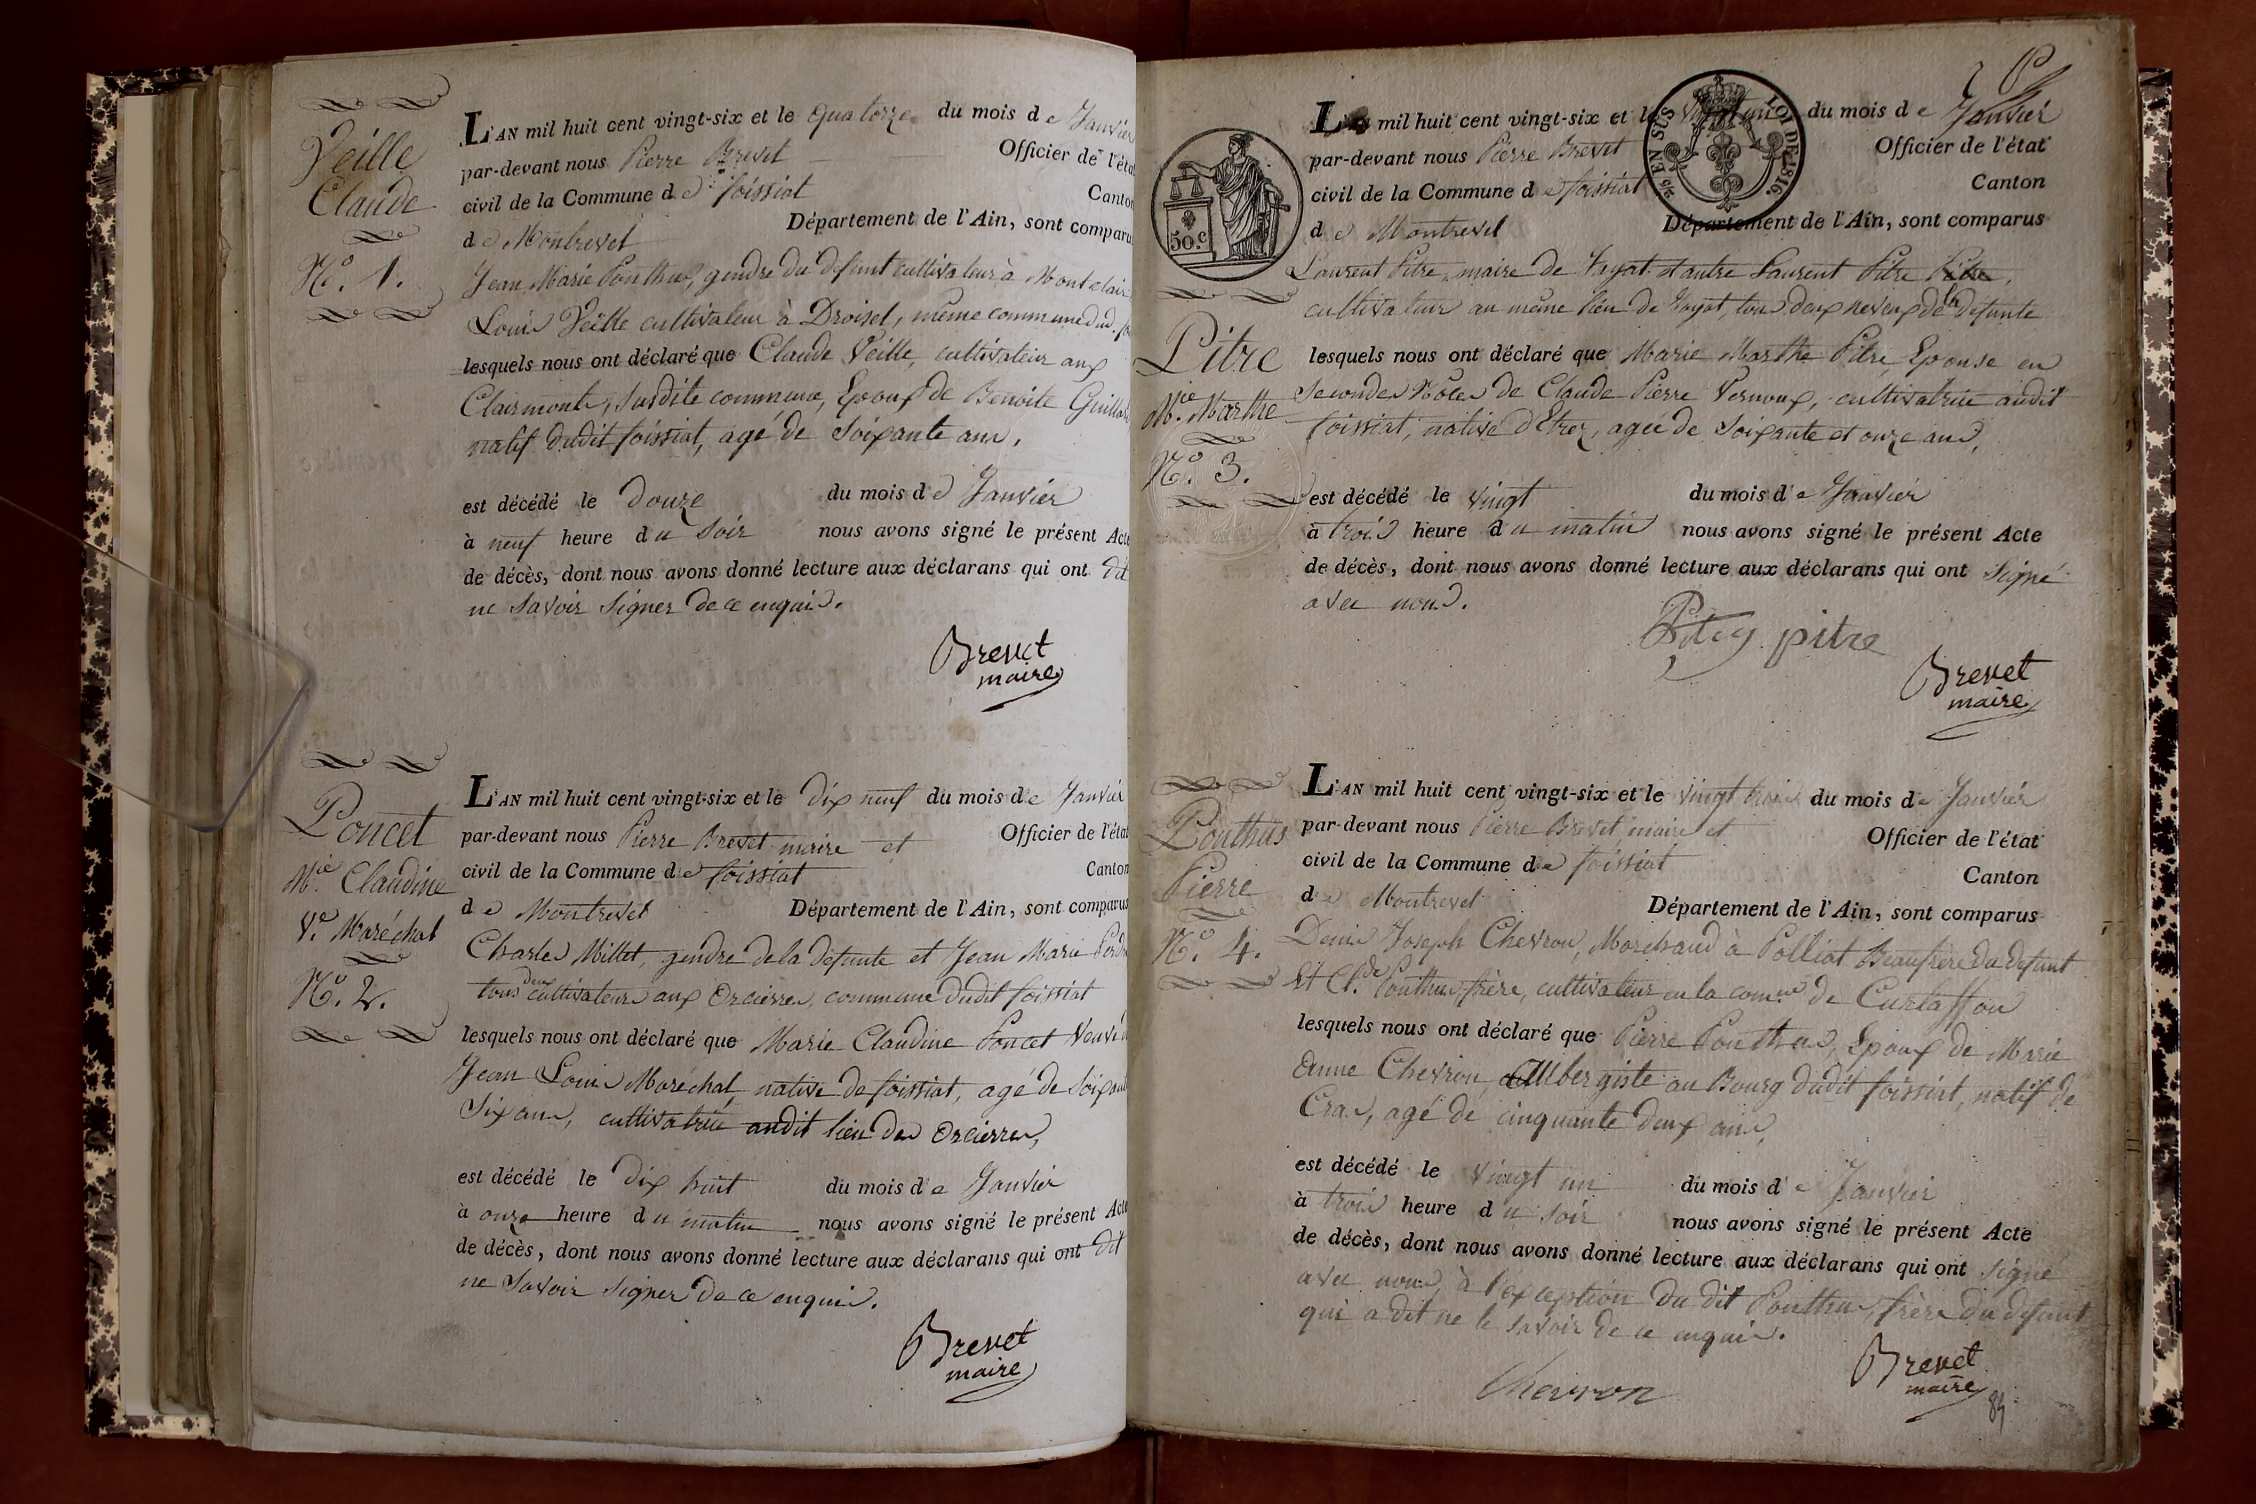 Veille
Claude
N.° 1.
L'AN mil huit cent vingt-six et le quatorze du mois de Janvier
par-devant nous Pierre Brevet Officier de l'éta
civil de la Commune de foissiat Canton
de Montrevel Département de l'Ain, sont comparu
Jean Marie Ponthus, gendre du defunt cultivateur à Montclair
Louis Veille cultivateur à Droisel, même commune dud.
lesquels nous ont déclaré que Claude Veille, cultivateur aux
Clairmonts, susdite commune, Epoux de Benoite Guilla
natif dudit foissiat, agé de Soixante ans,
est décédé le Douze du mois de Janvier
à neuf heure du Soir nous avons signé le présent Acte
de décès, dont nous avons donné lecture aux déclarans qui ont dit
ne savoir signer de ce enquis.
Brevet
maire
Poncet
M.ie Claudine
V.e Maréchal
N.° 2.
L'AN mil huit cent vingt-six et le dix neuf du mois de Janvier
par-devant nous Pierre Brevet maire et Officier de l'état
civil de la Commune de foissiat Canton
de Montrevel Département de l'Ain, sont comparus
Charles Millet, gendre de la defunte et Jean Marie
tous deux cultivateurs aux Orcierres, commune dudit foissiat
lesquels nous ont déclaré que Marie Claudine Poncet Veuve
Jean Louis Maréchal, native de foissiat, agé de Soixant
Six ans, cultivatrice audit lieu des Orcierres,
est décédé le dix huit du mois de Janvier
à onze heure du matin nous avons signé le présent Acte
de décès, dont nous avons donné lecture aux déclarans qui ont dit
ne Savoir signer de ce enquis.
Brevet
maire
EN SUS
LOI DE 1816.
50.c
Pitre
M.ie Marthe
N.° 3.
L'AN mil huit cent vingt-six et le vingt un du mois de Janvier
par-devant nous Pierre Brevet Officier de l'état
civil de la Commune de foissiat Canton
de Montrevel Département de l'Ain, sont comparus
Laurent Pitre, maire de Jayat et autre Laurent Pitre Pitre,
cultivateur au même lieu de Jayat, tous deux neveux de la Defunte
lesquels nous ont déclaré que Marie Marthe Pitre, Epouse en
Secondes Nôces de Claude Pierre Vernoux, cultivatrice audit
foissiat, native d'Etrez, agée de Soixante et onze ans,
est décédé le vingt du mois de Janvier
à trois heure du matin nous avons signé le présent Acte
de décès, dont nous avons donné lecture aux déclarans qui ont Signé
avec nous.
pitre
Brevet
maire
Ponthus
Pierre
N.° 4.
L'AN mil huit cent vingt-six et le vingt trois du mois de Janvier
par-devant nous Pierre Brevet maire et Officier de l'état
civil de la Commune de foissiat Canton
de Montrevel Département de l'Ain, sont comparus
Denis Joseph Chevron, Marchand à Polliat Beaufrère du Defunt
Et Cl.de Ponthus frère, cultivateur en la com.ne de Curtaffon
lesquels nous ont déclaré que Pierre Ponthus, Epoux de Marie
Anne Chevron, Aubergiste au Bourg dudit foissiat, natif de
Cras, agé de cinquante deux ans,
est décédé le vingt un du mois de Janvier
à trois heure du soir nous avons signé le présent Acte
de décès, dont nous avons donné lecture aux déclarans qui ont signé
avec nous, à l'exception du dit Ponthus, frère du defunt
qui a dit ne le savoir de ce enquis.
Chevron
Brevet
maire